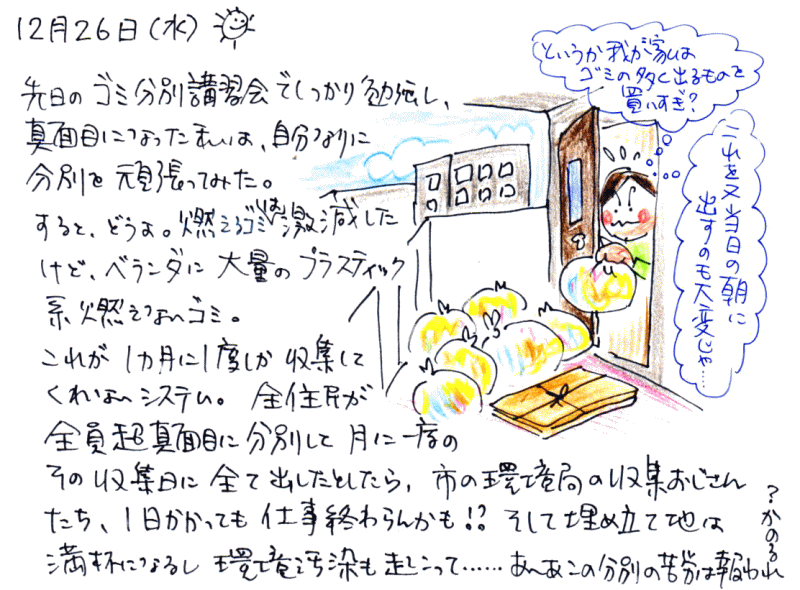 12月26日(水)
先日のゴミ分別講習会でしっかり勉強し、
真面目になった私は、自分なりに
分別を頑張ってみた。
すると、どうよ。燃えるゴミは激減した
けど、ベランダに大量のプラスティック
系燃えないゴミ。
これが1カ月に1度しか収集して
くれないシステム。全住民が
全員超真面目に分別して月に一度の
その収集日に全て出したとしたら、市の環境局の収集おじさん
たち、1日かかっても仕事終わらんかも!?そして埋め立て地は
満杯になるし環境汚染も起こって……あーあこの分別の苦労は報われ
るのか?
というか我が家は
ゴミの多く出るものを
買いすぎ?
これを又当日の朝に
出すのも大変じゃ…